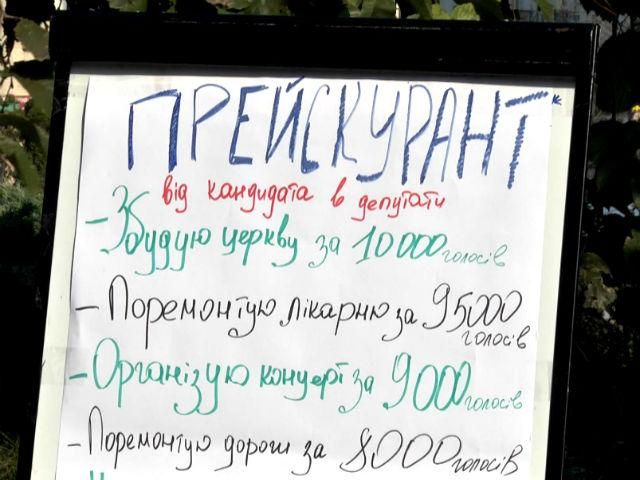 ПРЕЙСКУРАНТ
від кандидата в депутати
- Збудую церкву за 10000 голосів
- Поремонтую лікарню за 95000 голосів
- Організую концерт за 9000 голосів
- Поремонтую дороги за 8000 голосів